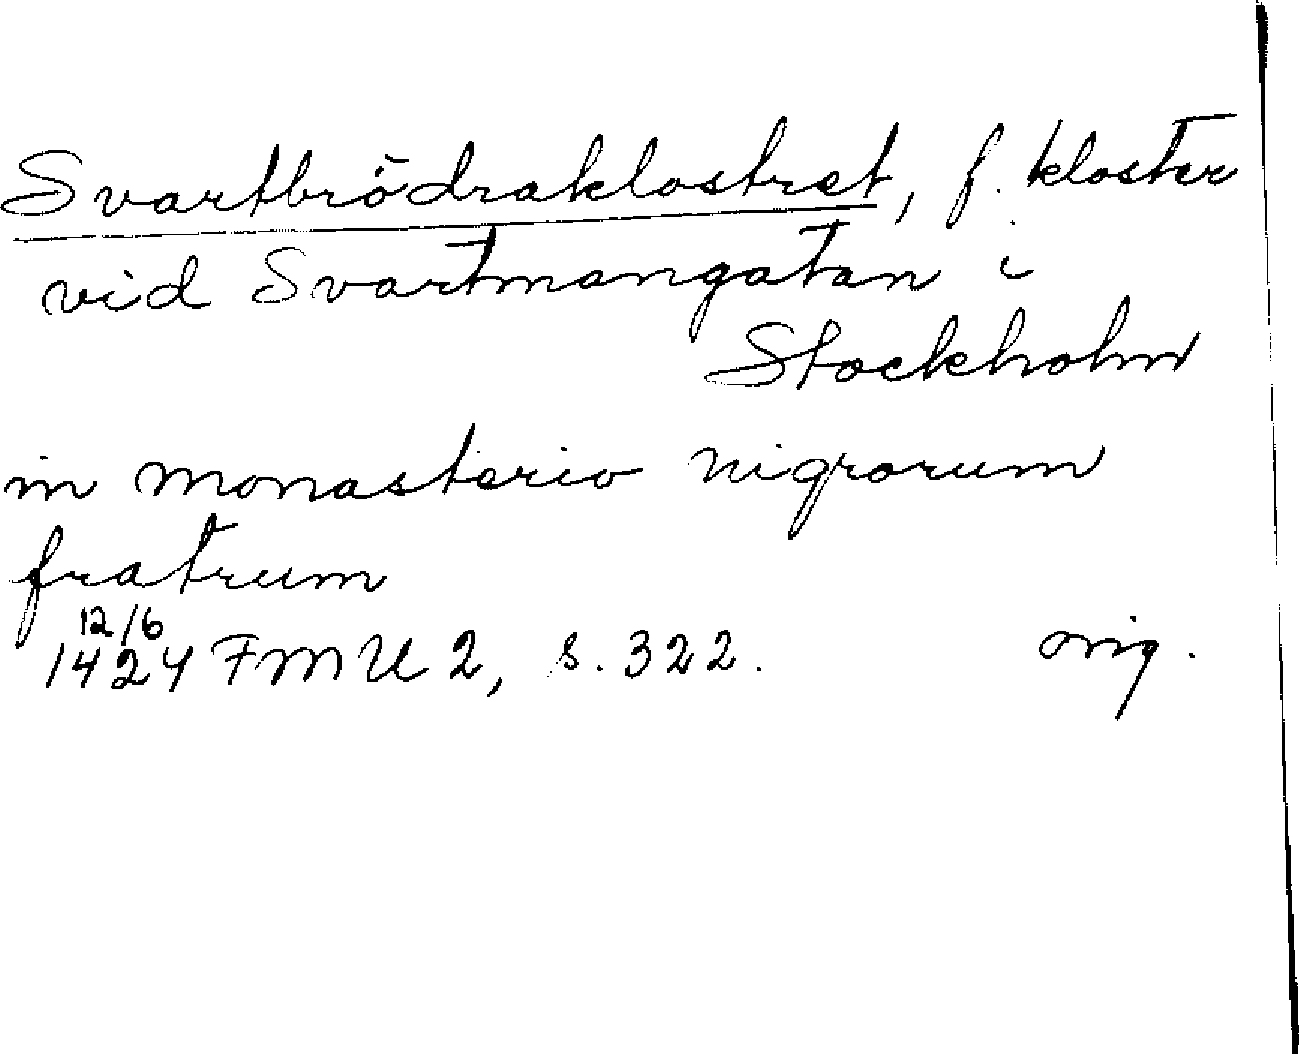 Svartbrödraklostret, f. kloster
vid Svartmangatan i
Stockholm
in monasterio nigrorum
fratrum
12/6
1424 FMU 2, s. 322. orig.